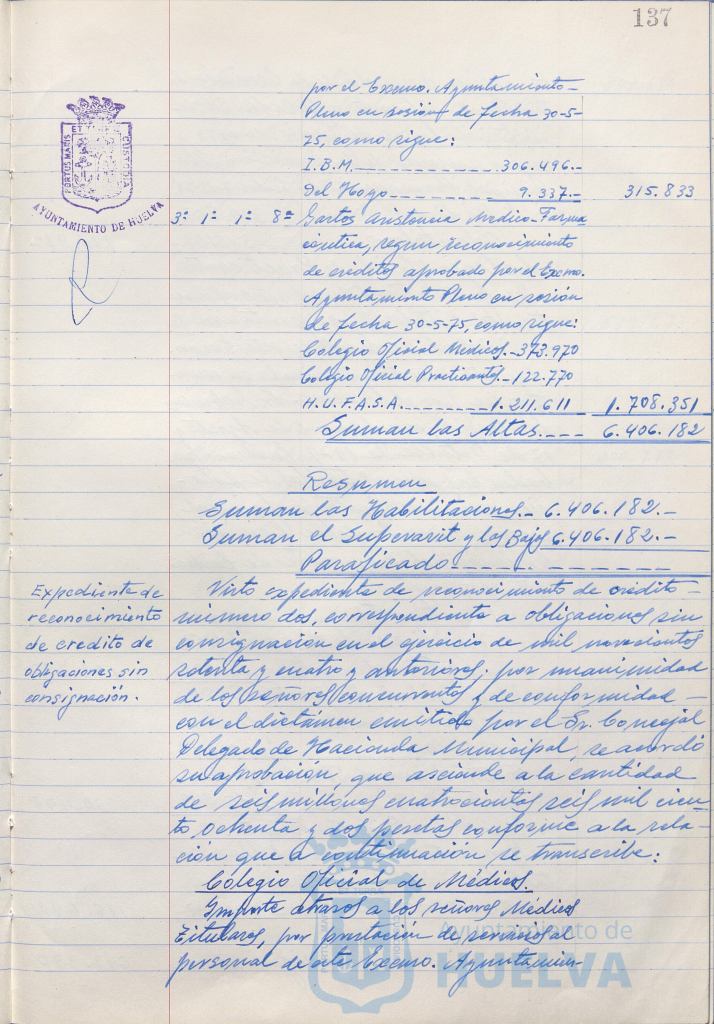 137
por el Excmo. Ayuntamiento-
Pleno en sesión de fecha 30-5-
75, como sigue:
I.B.M. 306.496.-
Del Hoyo 9.337.- 315.833
3º 1º 1º 8º Gastos asistencia Medico-Farma
céutica, segun reconocimiento
de créditos aprobado por el Excmo.
Ayuntamiento Pleno en sesión
de fecha 30-5-75, como sigue:
Colegio Oficial Médicos.- 373.970
Colegio Oficial Practicantes- 122.770
H.U.F.A.S.A. 1.211.611 1.708.351
Suman las Altas.--- 6.406.182
Resumen
Suman las Habilitaciones.- 6.406.182.-
Suman el Superavit y las Bajas 6.406.182.-
Paraficado
Expediente de
reconocimiento
de credito de
obligaciones sin
consignación.
Visto expediente de reconocimiento de crédito-
número dos, correspondiente a obligaciones sin
consignación en el ejercicio de mil novecientos
setenta y cuatro y anteriores. por unanimidad
de los señores concurrentes y de conformidad-
con el dictámen emitido por el Sr. Concejal
Delegado de Hacienda Municipal, se acordó
su aprobación, que asciende a la cantidad
de seis millones cuatrocientas seis mil cien-
to ochenta y dos pesetas conforme a la rela-
ción que a continuación se transcribe:
Colegio Oficial de Médicos.
Importe atrasos a los señores Médicos
Titulares, por prestación de servicios al
personal de este Excmo. Ayuntamien-
PORTUS MARIS ET TERRAE CUSTODIA
AYUNTAMIENTO DE HUELVA
Ayuntamiento de
HUELVA